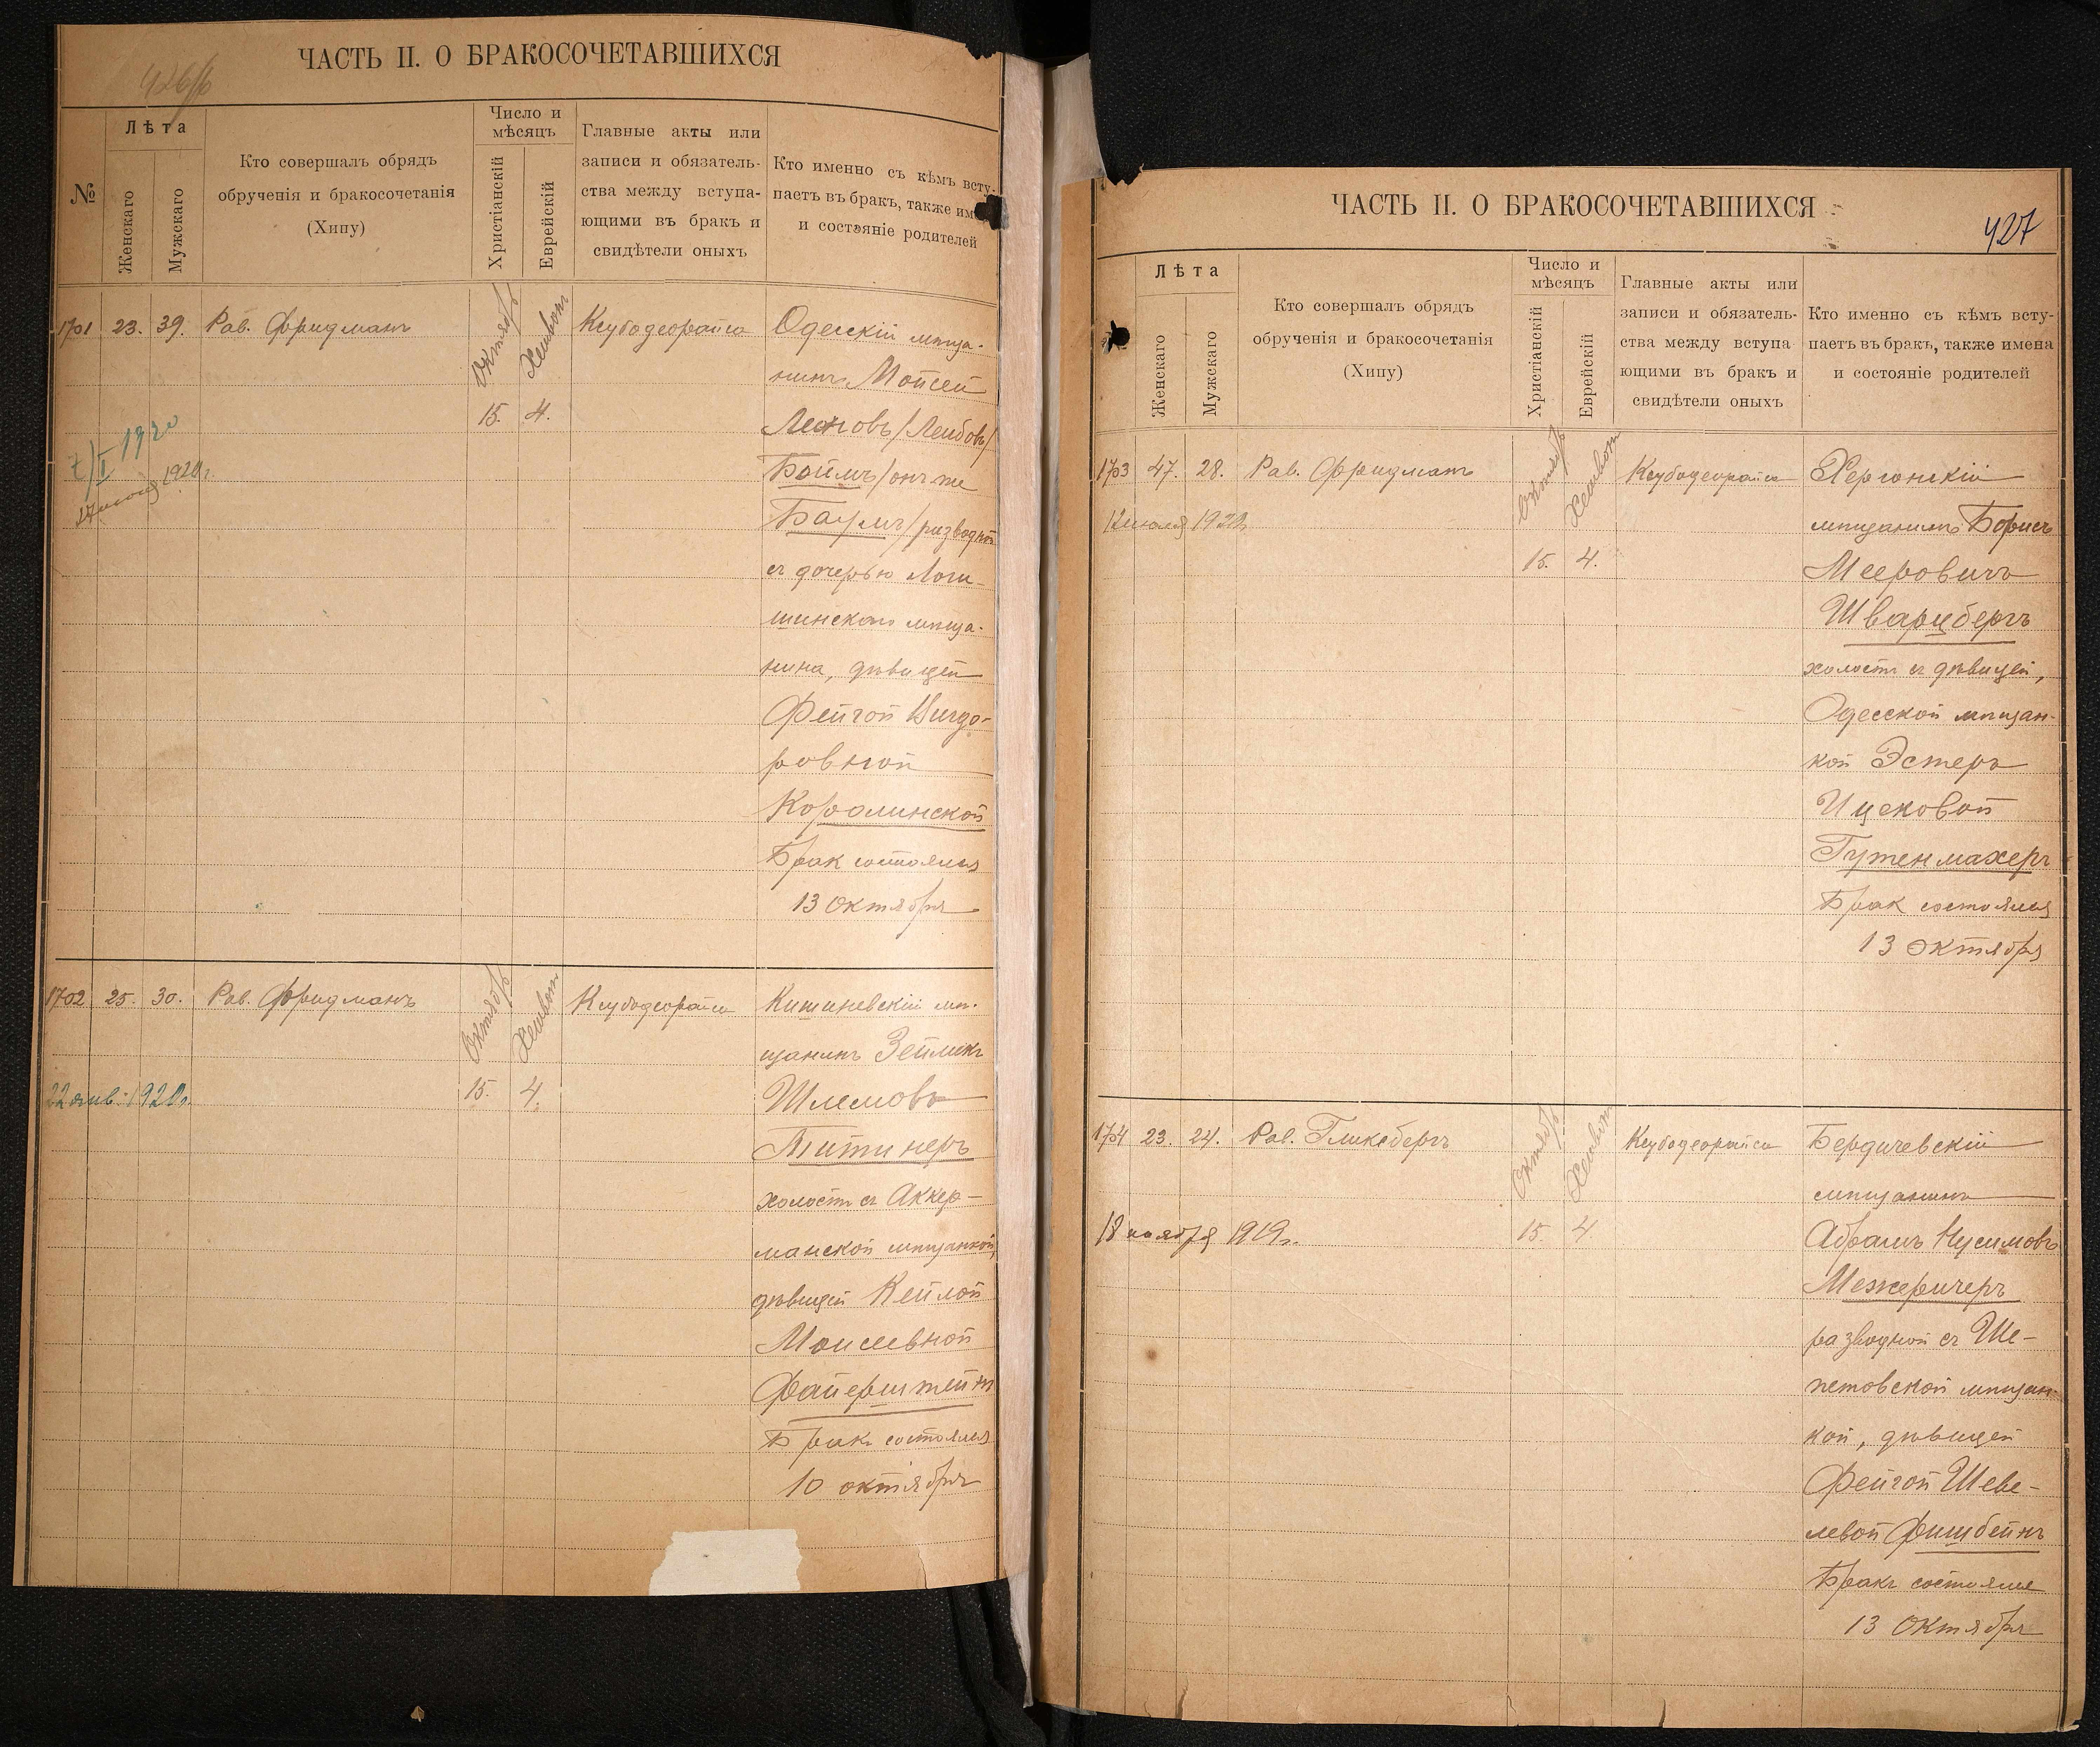 ЧАСТЬ II. О БРАКОСОЧЕТАВШИХСЯ
№
Лѣта
Женскаго
Мужскаго
Кто совершалъ обрядъ
обрученія и бракосочетанія
(Хипу)
Число и
мѣсяцъ
Христіанскій
Еврейскій
Главные акты или
записи и обязатель-
ства между вступа-
ющими въ бракъ и
свидѣтели оныхъ
Кто именно съ кѣмъ всту-
паетъ въ бракъ, также им
и состояніе родителей
1701 23. 39. Рав. Фридманъ
Октябрь
Хешвон
15. 4.
Ксубодеорайса
Одесскій мѣща-
нинъ Мойсей
Леиговъ/Лейбовъ/
Боймъ/онъ же
Баумъ/разводной
съ дочерью Логи-
шинскаго мѣща-
нина, дѣвицей
Фейгой Вигдо-
ровной
Королинской
Брак состоялся
13 октября
1920
1920г.
1702 25. 30. Рав. Фридманъ
Октябрь
Хешвон
15. 4.
Ксубодеорайса
Кишиневскій мѣ-
щанинъ Зейликъ
Шлемовъ
Титинеръ
холостъ съ Аккер-
манской мѣщанкой,
дѣвицей Кейлой
Моисеевной
Файерштейнъ
Бракъ состоялся
10 октября
22 янв. 1920г.
ЧАСТЬ II. О БРАКОСОЧЕТАВШИХСЯ
427
Лѣта
Женскаго
Мужскаго
Кто совершалъ обрядъ
обрученія и бракосочетанія
(Хипу)
Число и
мѣсяцъ
Христіанскій
Еврейскій
Главные акты или
записи и обязатель-
ства между вступа
ющими въ бракъ и
свидѣтели оныхъ
Кто именно съ кѣмъ всту-
паетъ въ бракъ, также имена
и состояніе родителей
1703 47. 28. Рав. Фридманъ
Октябрь
Хешвон
15. 4.
Ксубодеорайса
Херсонскій
мѣщанинъ Борисъ
Мееровичъ
Шварцбергъ
холостъ съ дѣвицей,
Одесской мѣщан-
кой Эстеръ
Ицековой
Гутенмахеръ
Брак состоялся
13 октября
12 июля 1920г.
1704 23. 24. Рав. Гликсбергъ
Октябрь
Хешвон
15. 4.
Ксубодеорайса
Бердичевскій
мѣщанинъ
Абрамъ Нусимовъ
Межеричеръ
разводной съ Ше-
петовской мѣщан-
кой, дѣвицей
Фейгой Шеве-
левой Фишбейнъ
Бракъ состоялся
13 октября
18 ноября 1919г.